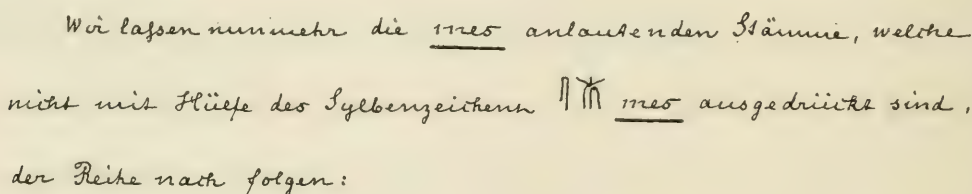 Wir laſsen nunmehr die mes anlautenden Stämme, welche
nicht mit Hülfe des Sylbenzeichens 𓋴𓄟 mes ausgedrückt sind,
der Reihe nach folgen: